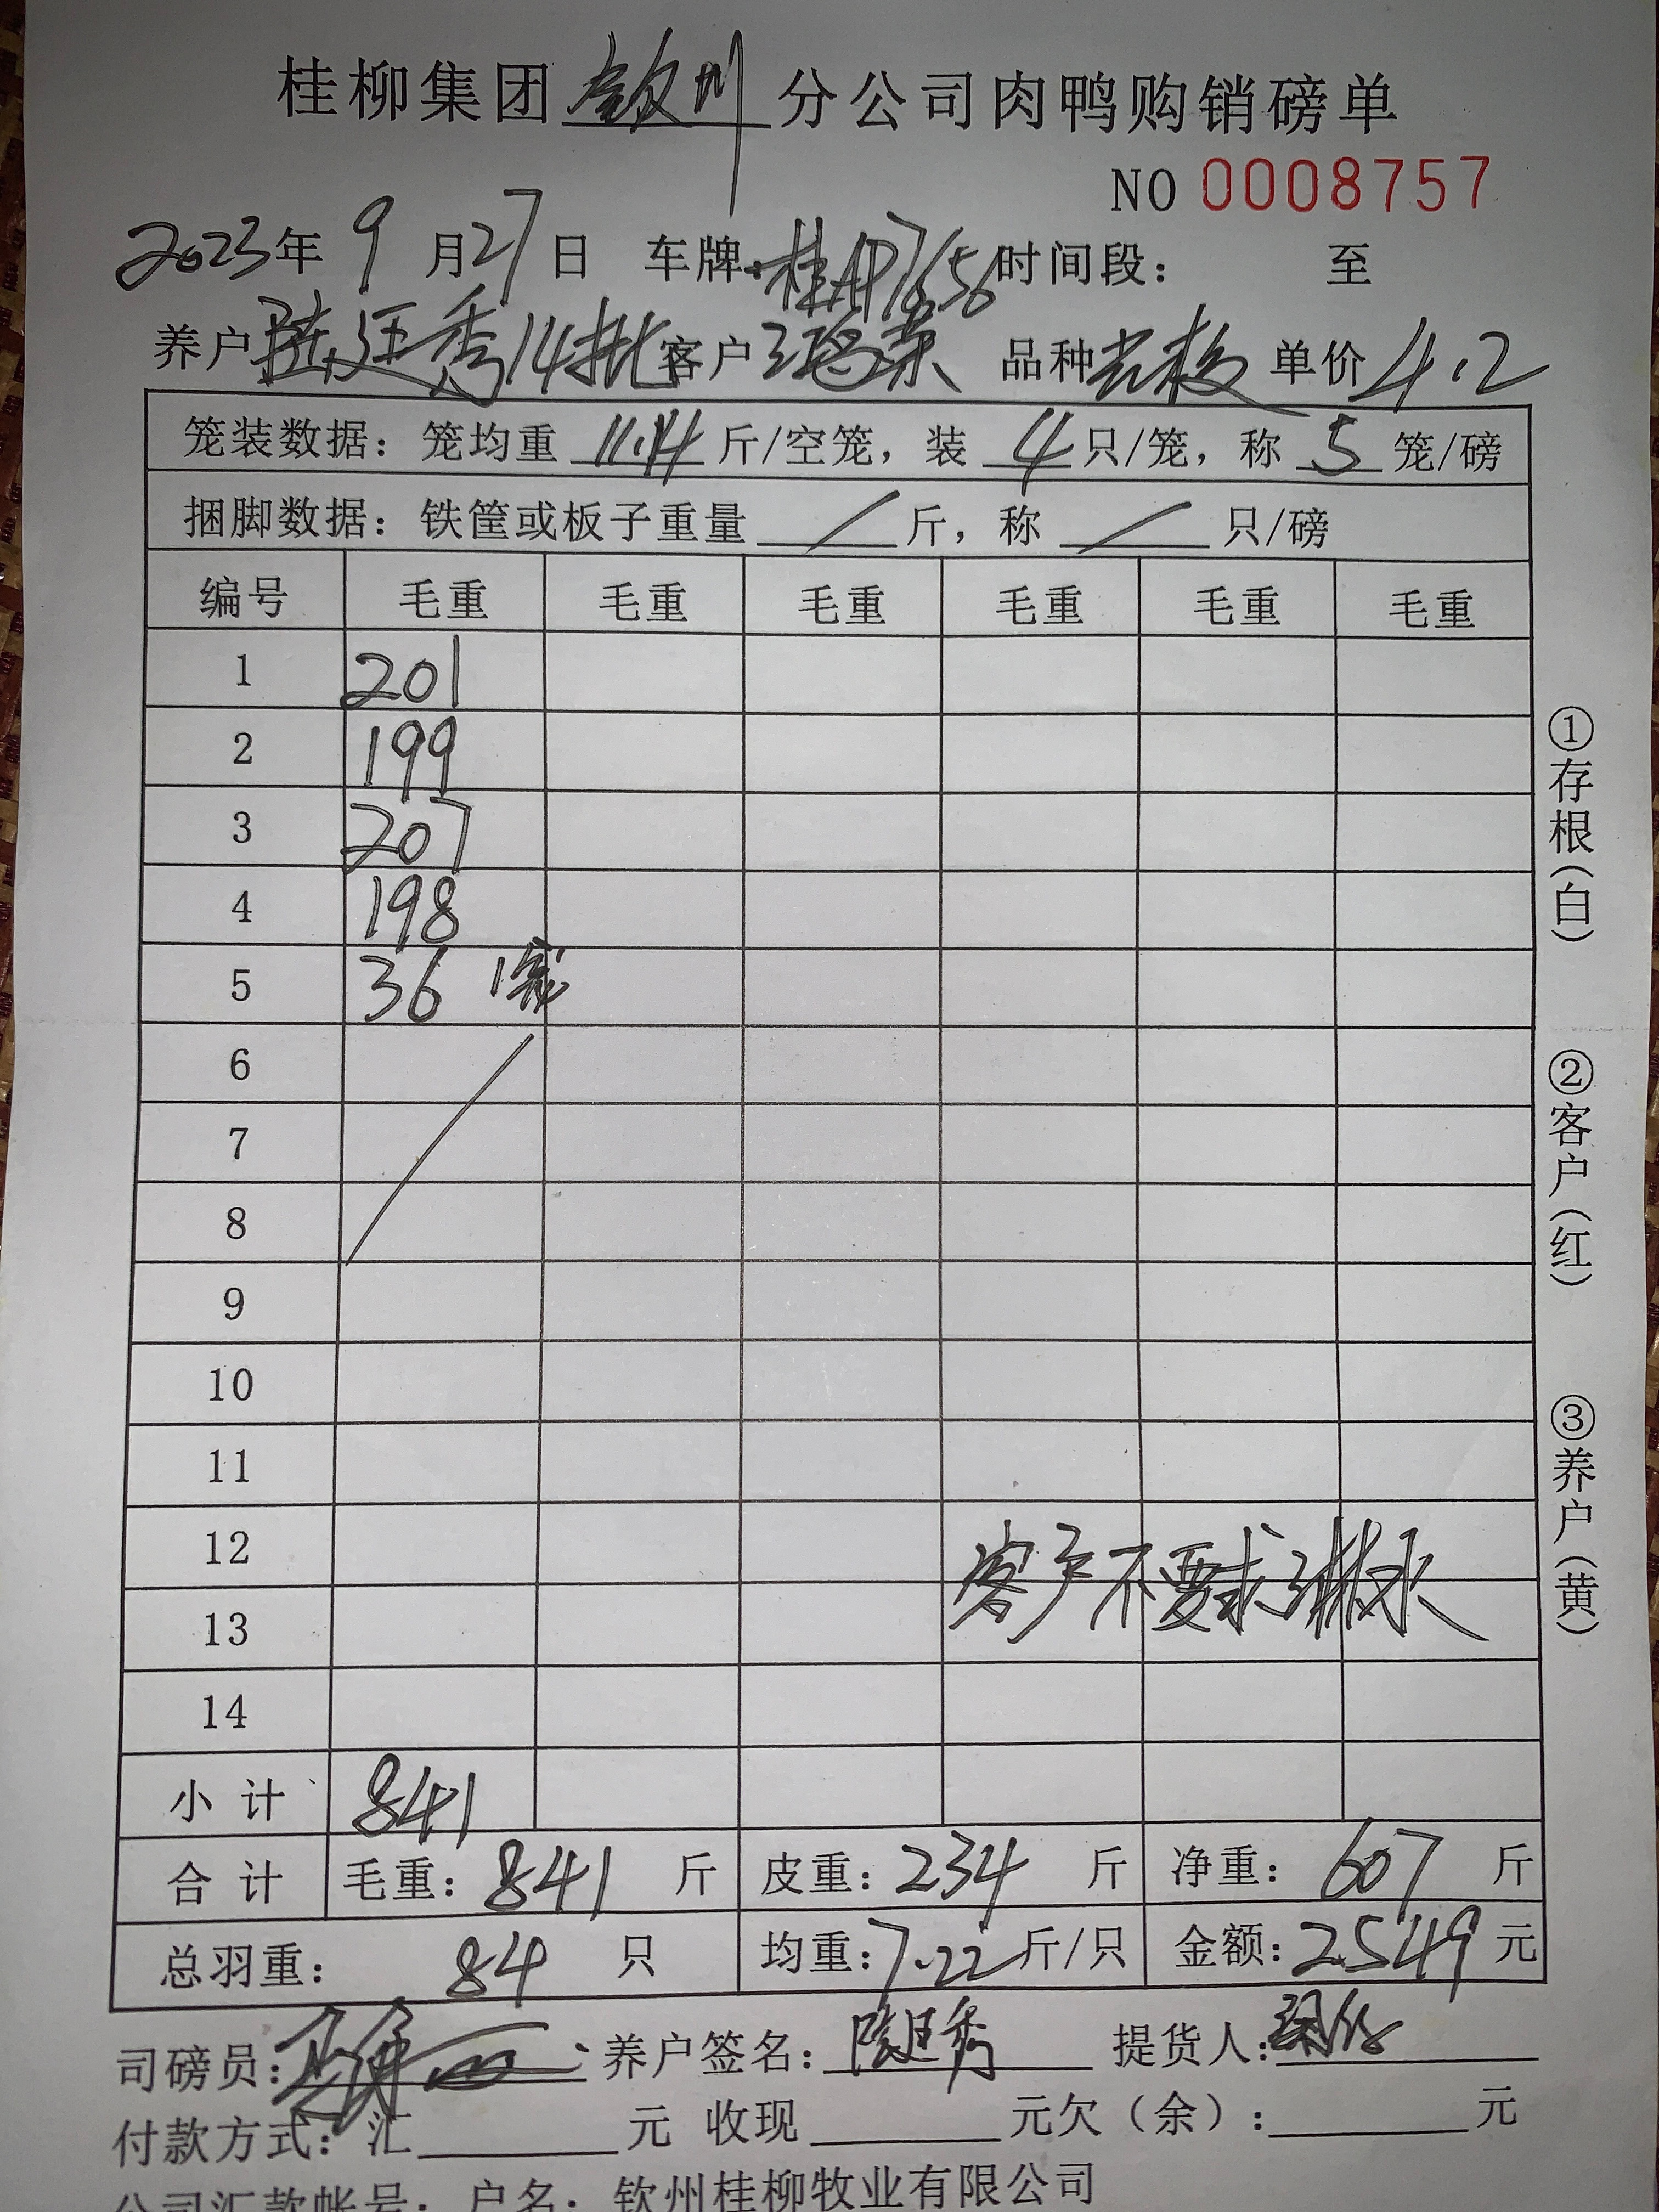 桂柳集团钦州分公司肉鸭购销磅单
NO 0008757
2023年 9 月27日 车牌:桂AD7656时间段: 至
养户陆廷秀14批客户 品种 单价4.2
笼装数据: 笼均重 11.14 斤/空笼, 装 4 只/笼, 称 5 笼/磅
捆脚数据: 铁筐或板子重量 / 斤, 称 / 只/磅
编号 毛重 毛重 毛重 毛重 毛重 毛重
1 201
2 199
3 207
4 198
5 36 1笼
6
7
8
9
10
11
12
客户不要求淋水
13
14
小 计 841
合 计 毛重: 841 斤 皮重: 234 斤 净重: 607 斤
总羽重: 84 只 均重:7.22斤/只 金额:2549元
司磅员: 养户签名:陆廷秀 提货人:
付款方式: 汇 元 收现 元欠(余): 元
公司汇款帐号: 户名: 钦州桂柳牧业有限公司
①存根(白)
②客户(红)
③养户(黄)